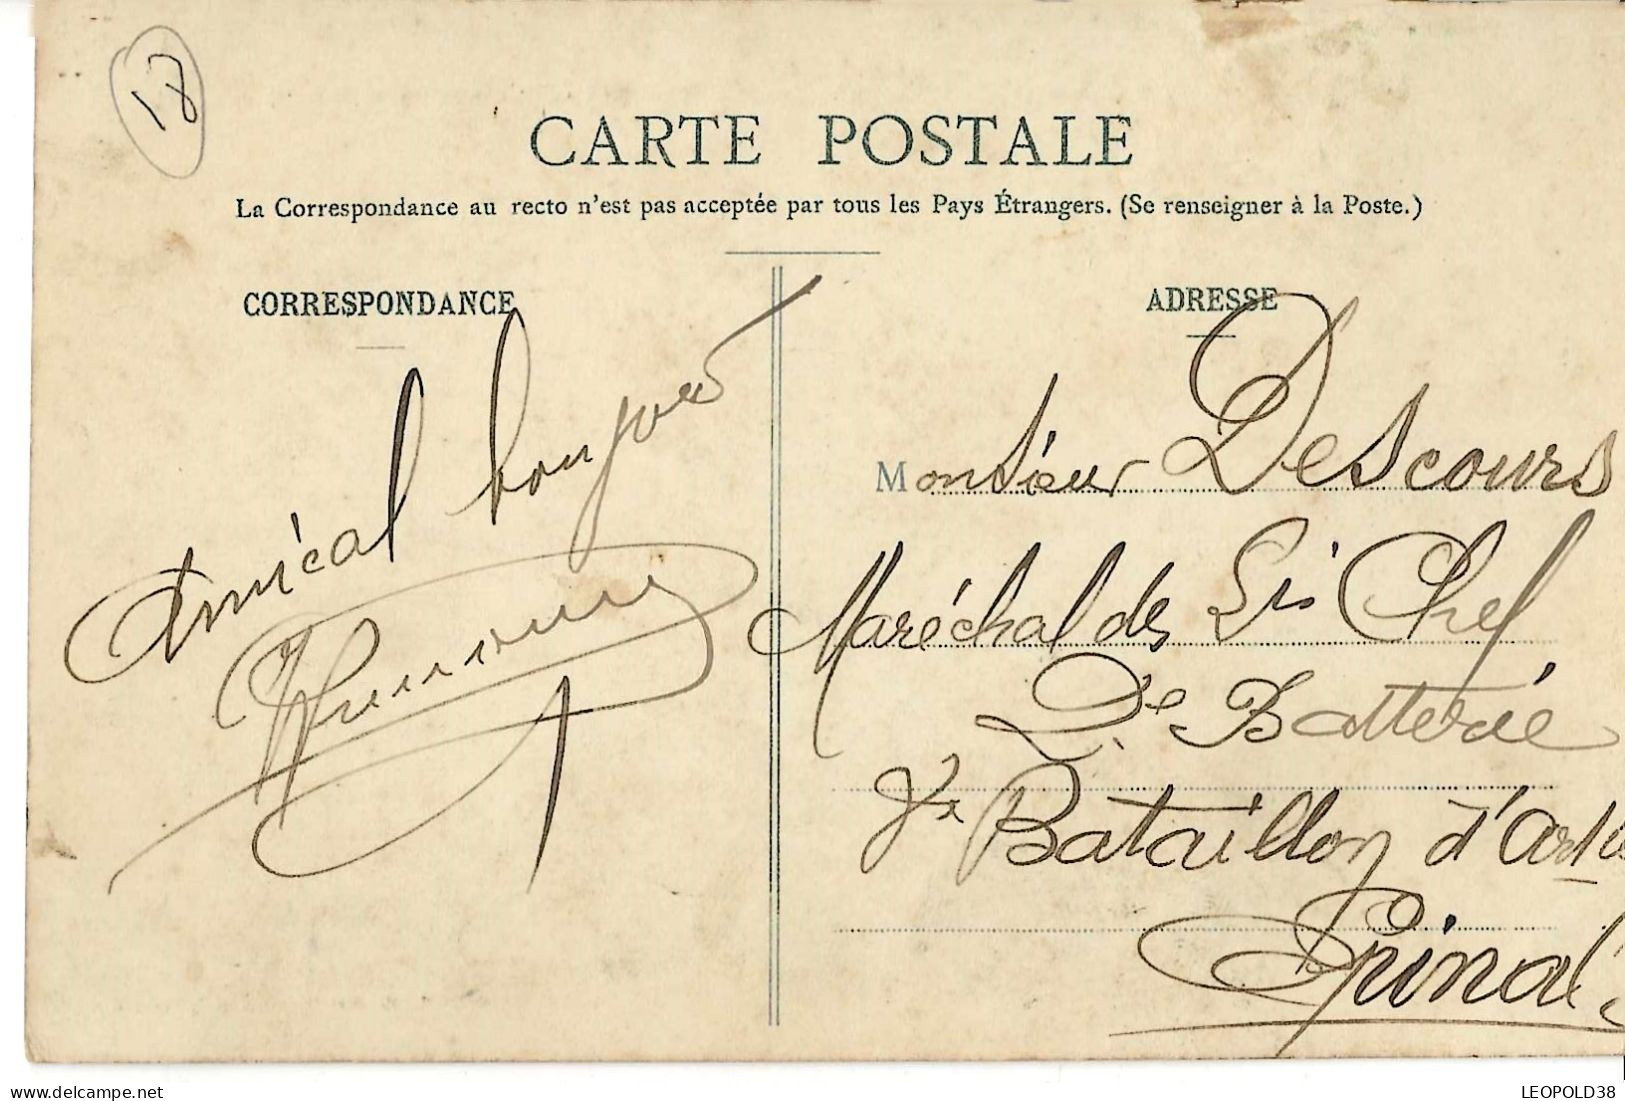 18
CARTE POSTALE
La Correspondance au recto n'est pas acceptée par tous les Pays Étrangers. (Se renseigner à la Poste.)
CORRESPONDANCE
Amical bonjour
ADRESSE
Monsieur Descours
Maréchal des Lis Chef
De Batterie
Bataillon d'Art
Epinal
www.delcampe.net
LEOPOLD38